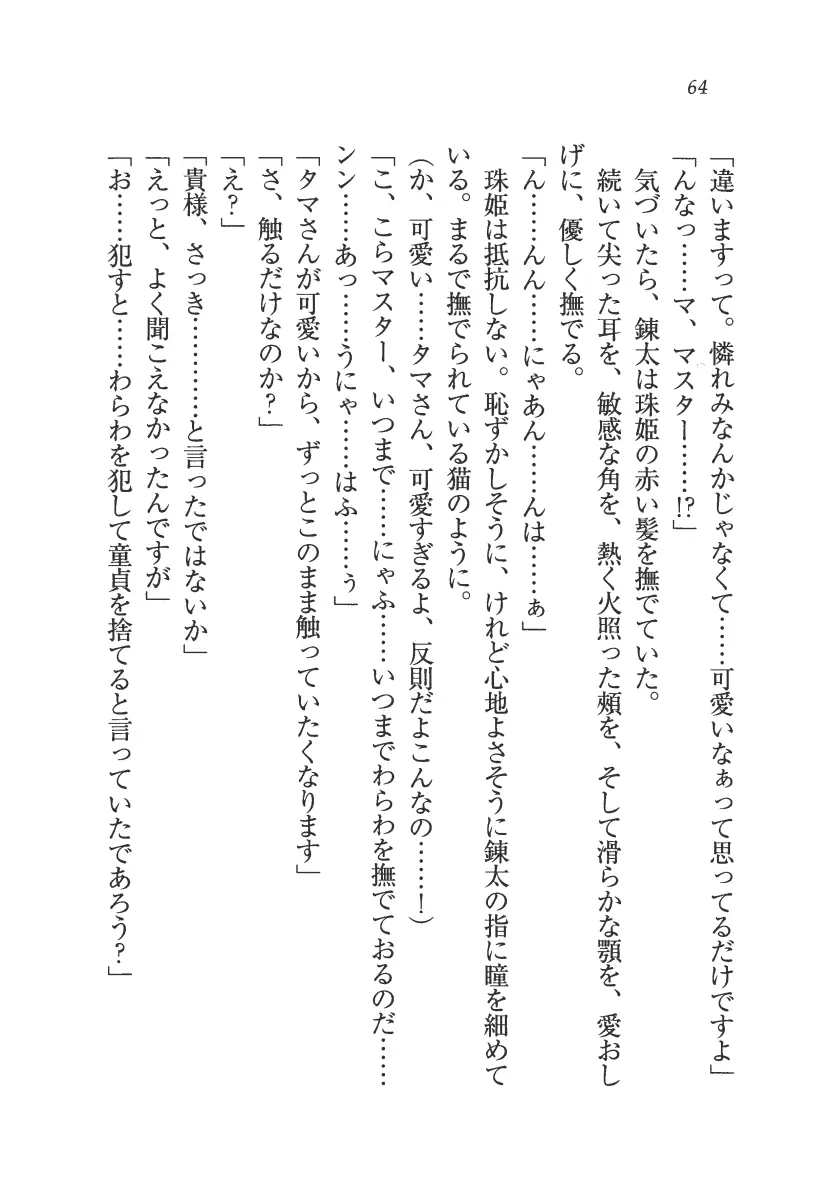 64
「違いますって。憐れみなんかじゃなくて……可愛いなぁって思ってるだけですよ」
「んなっ……マ、マスター……!?」
　気づいたら、錬太は珠姫の赤い髪を撫でていた。
　続いて尖った耳を、敏感な角を、熱く火照った頰を、そして滑らかな顎を、愛おし
げに、優しく撫でる。
「ん……んん……にゃあん……んは……ぁ」
　珠姫は抵抗しない。恥ずかしそうに、けれど心地よさそうに錬太の指に瞳を細めて
いる。まるで撫でられている猫のように。
（か、可愛い……タマさん、可愛すぎるよ、反則だよこんなの……！）
「こ、こらマスター、いつまで……にゃふ……いつまでわらわを撫でておるのだ……
ンン……あっ……うにゃ……はふ……ぅ」
「タマさんが可愛いから、ずっとこのまま触っていたくなります」
「さ、触るだけなのか？」
「え？」
「貴様、さっき…………と言ったではないか」
「えっと、よく聞こえなかったんですが」
「お……犯すと……わらわを犯して童貞を捨てると言っていたであろう？」